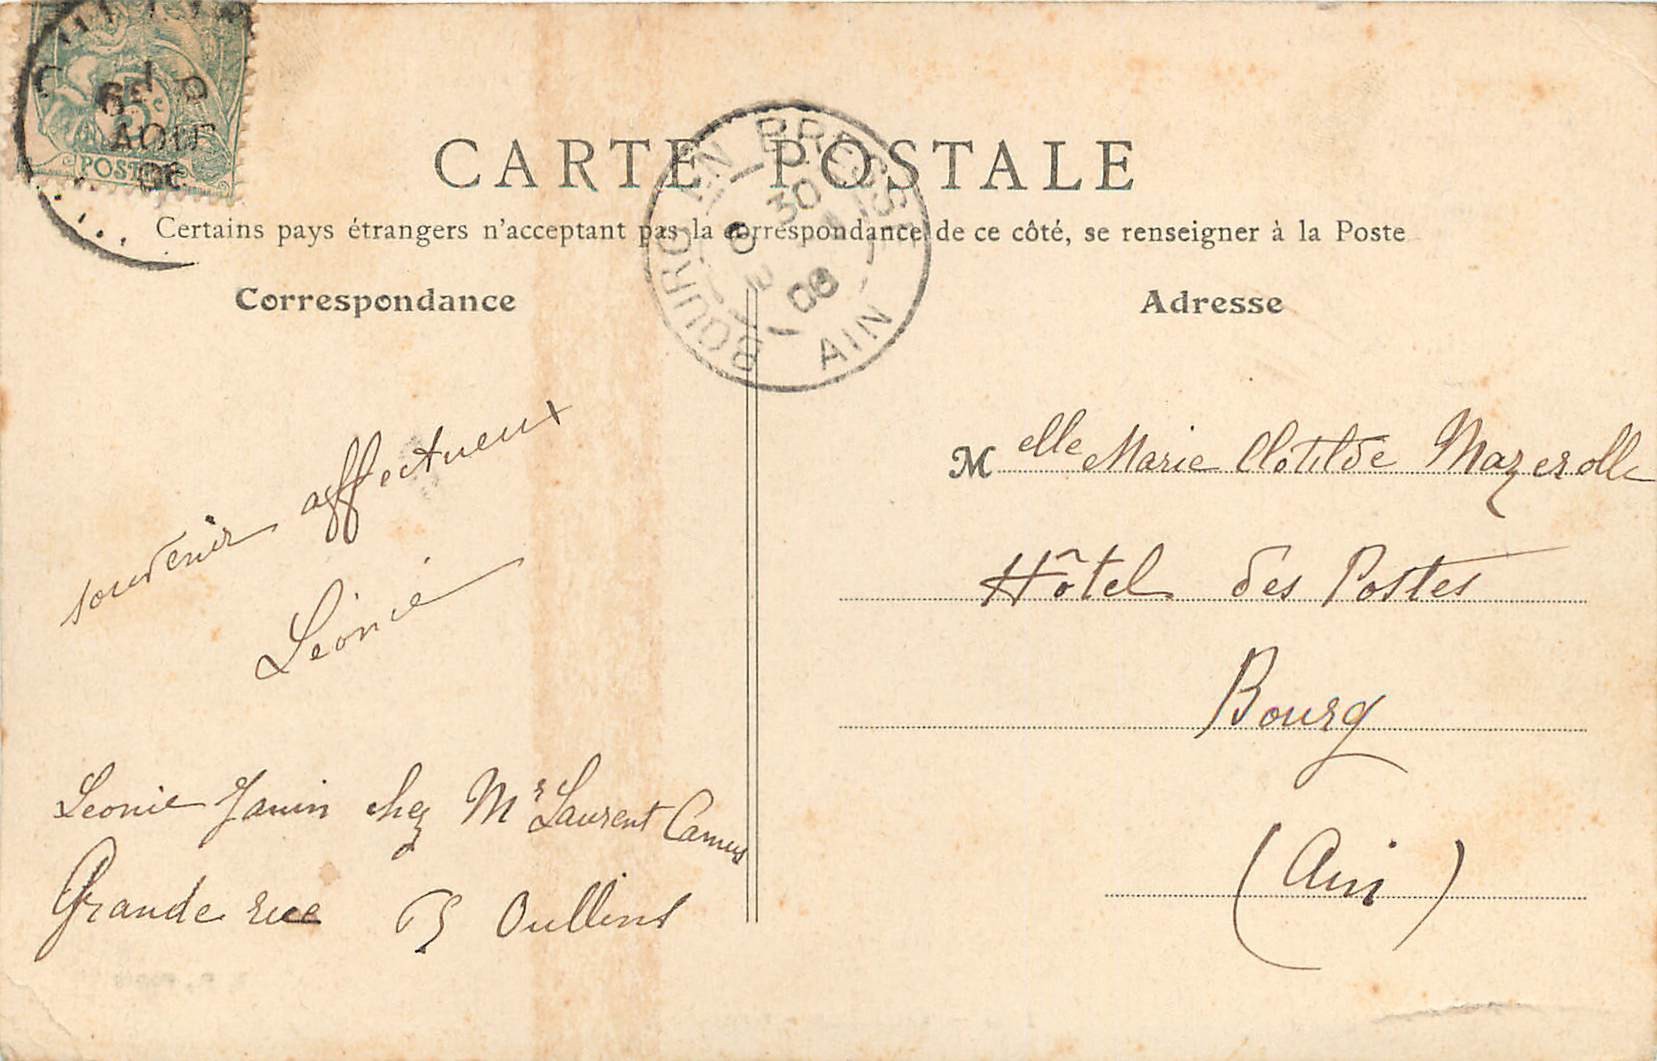 POSTES
AOUT
06
CARTE POSTALE
BOURG EN BRESSE
30
06
AIN
Certains pays étrangers n'acceptant pas la correspondance de ce côté, se renseigner à la Poste
Correspondance
Adresse
souvenir affectueux
Léonie
Leonie Janin chez Mr Laurent Camus
Grande rue 65 Oullins
Melle Marie Clotilde Mazerolle
Hôtel des Postes
Bourg
(Ain)